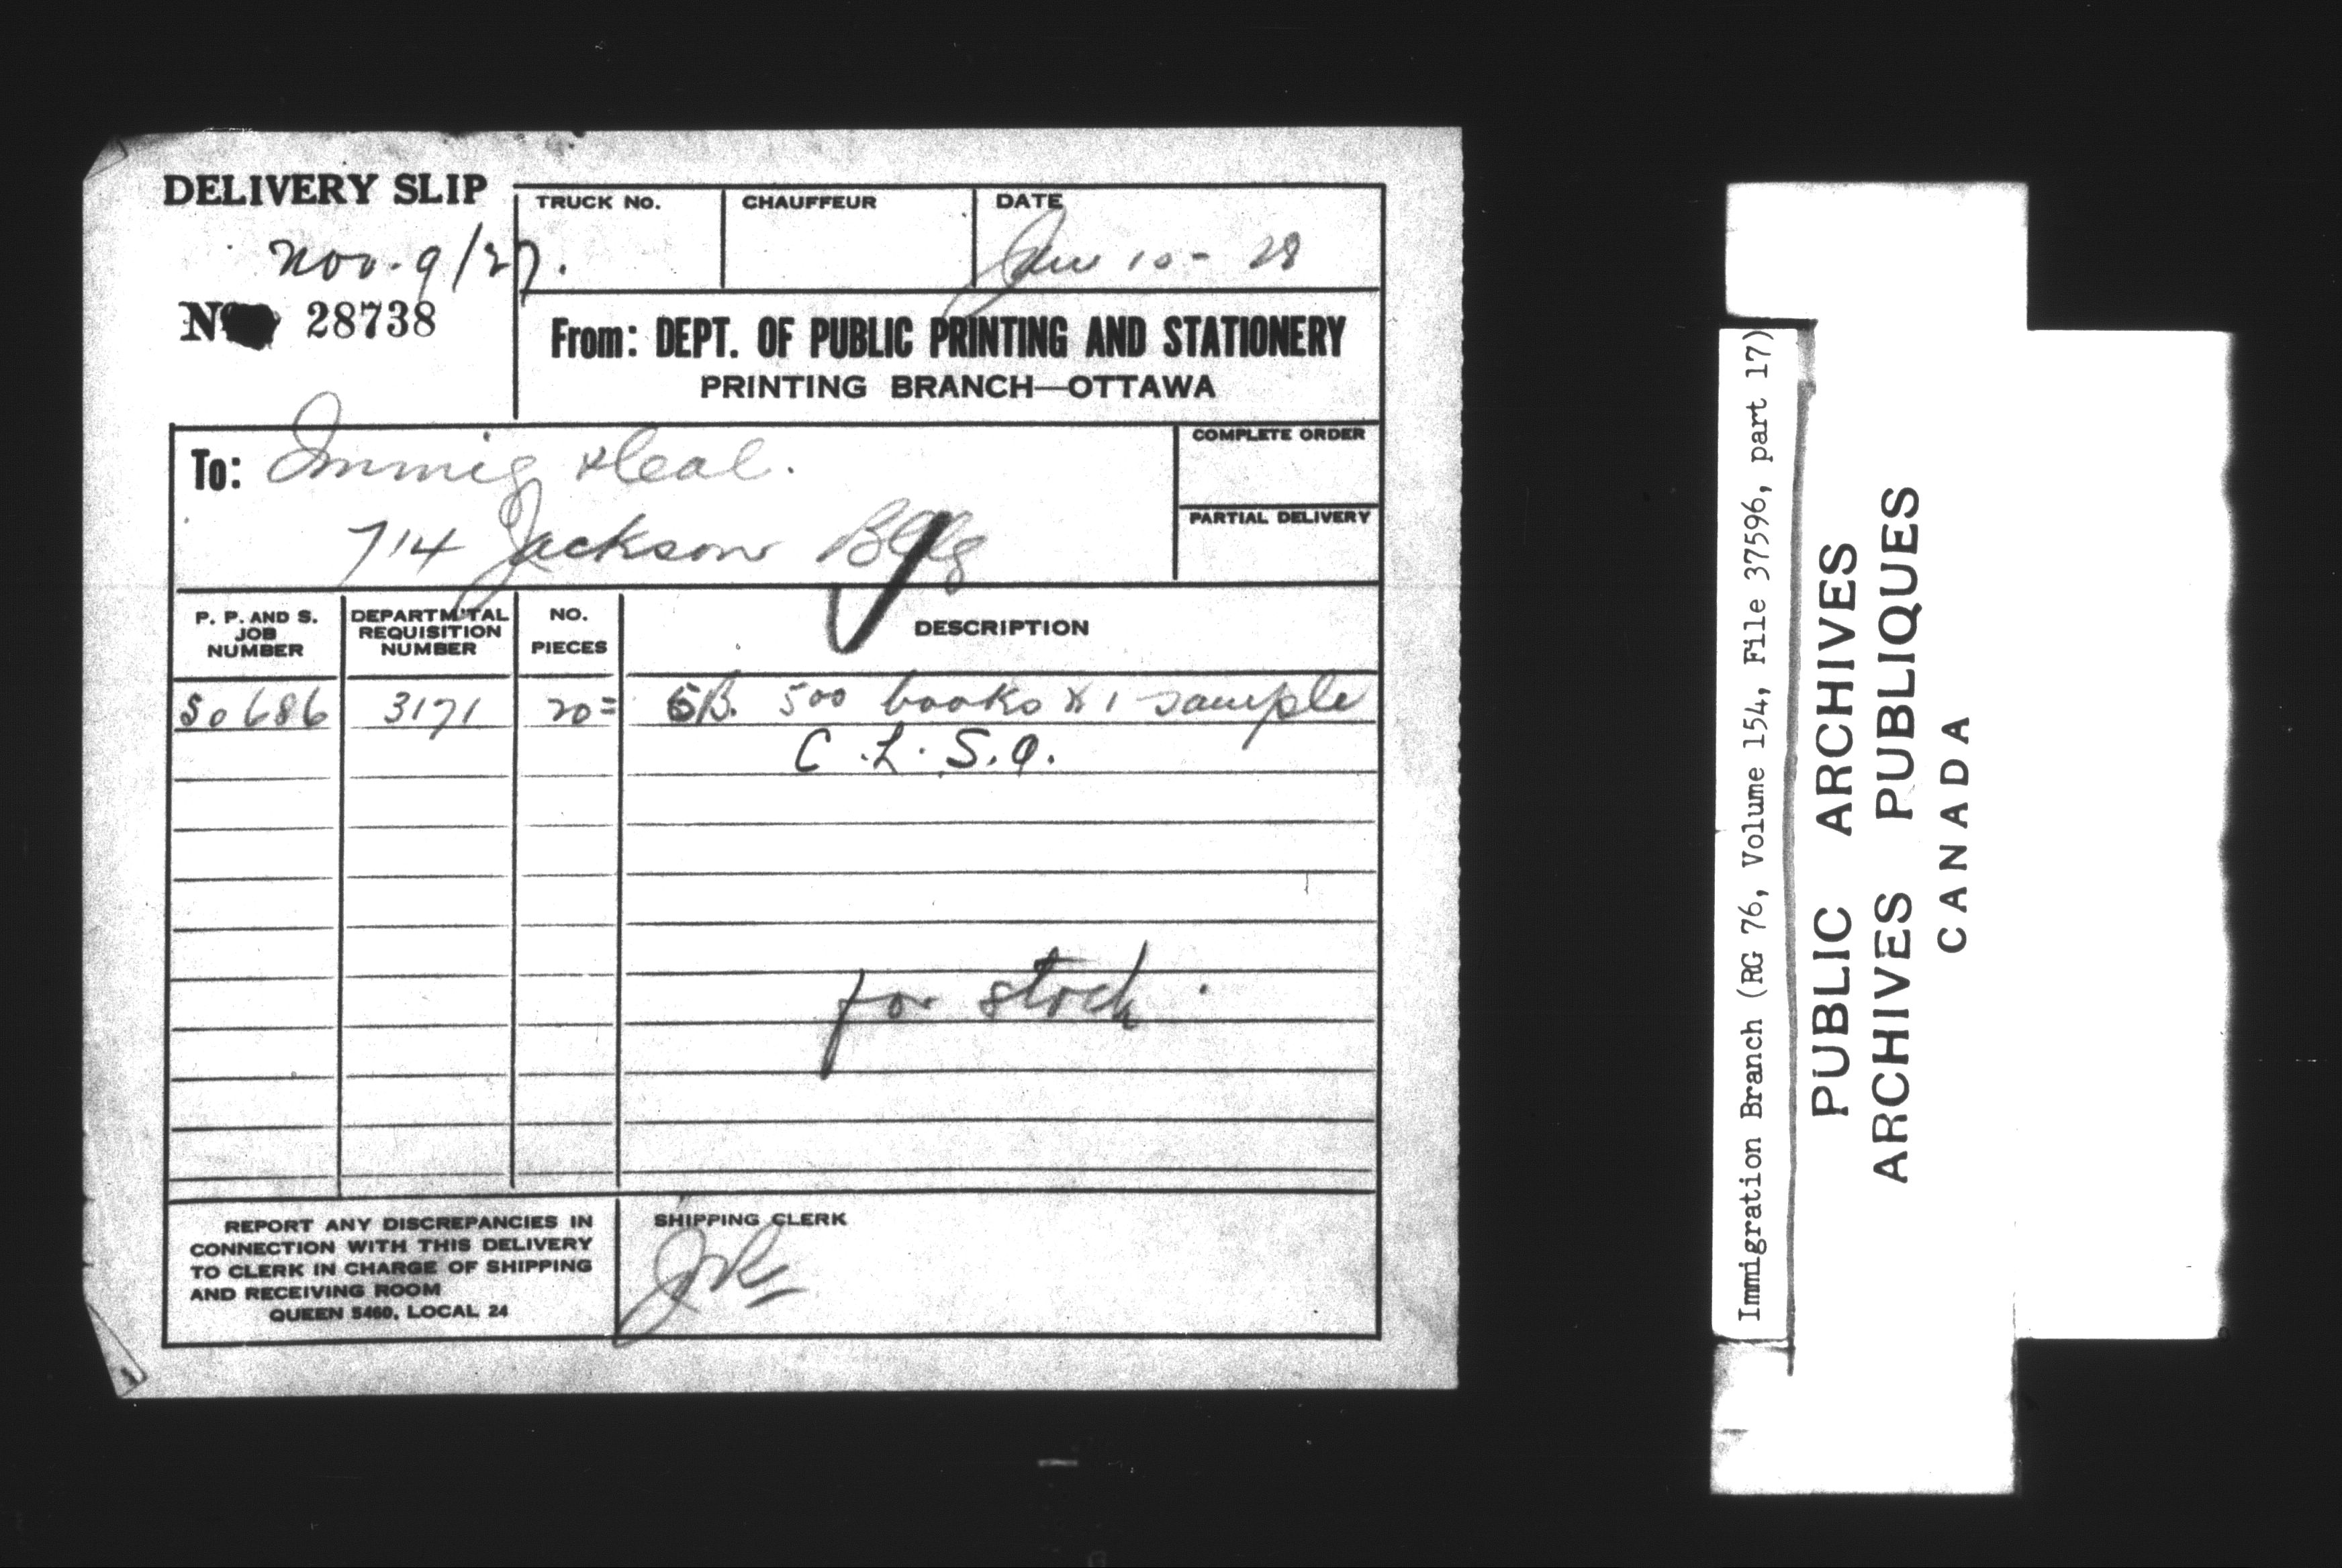 DELIVERY SLIP
Nov. 9/27.
No 28738
TRUCK No.
CHAUFFEUR
DATE
Jan 10 - 28
From: DEPT. OF PUBLIC PRINTING AND STATIONERY
PRINTING BRANCH—OTTAWA
To: Immig
714 Jackson Bldg
COMPLETE ORDER
PARTIAL DELIVERY
P. P. AND S. JOB NUMBER
DEPARTM'TAL REQUISITION NUMBER
NO. PIECES
DESCRIPTION
50686 3171 20= 5B. 500 books & 1 sample
C.L.S.A.
for stock.
REPORT ANY DISCREPANCIES IN
CONNECTION WITH THIS DELIVERY
TO CLERK IN CHARGE OF SHIPPING
AND RECEIVING ROOM
QUEEN 5460, LOCAL 24
SHIPPING CLERK
Immigration Branch (RG 76, Volume 154, File 37596, part 17)
PUBLIC ARCHIVES
ARCHIVES PUBLIQUES
CANADA